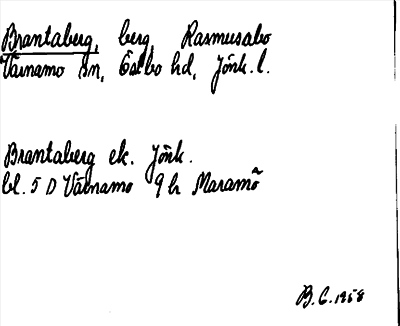 Brantaberg, berg Rasmusabo
Värnamo sn, Östbo hd, Jönk. l.
Brantaberg ek. Jönk.
bl. 5 D Värnamo 9 h Maramö
B.C. 1958